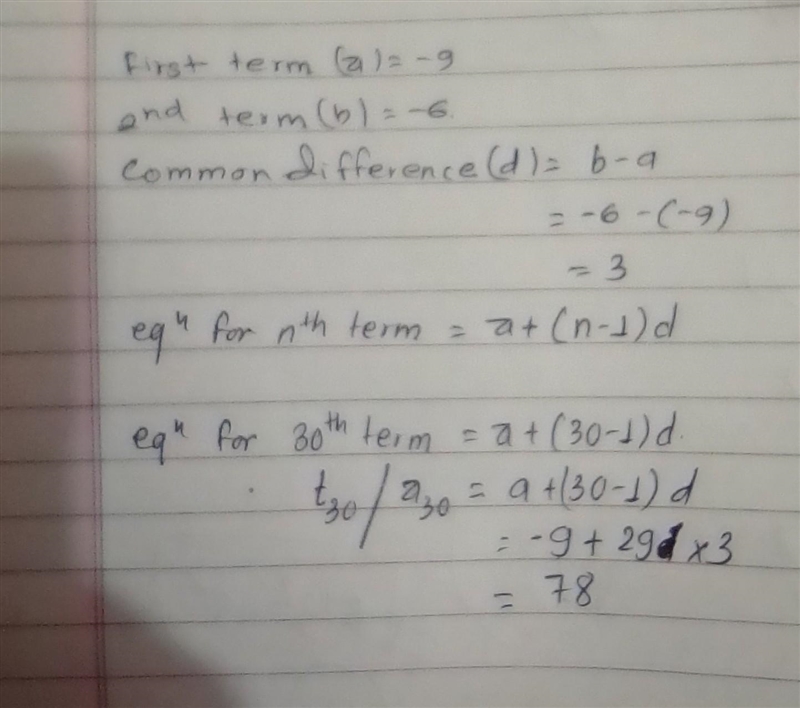 First term (a) = -9
2nd term (b) = -6.
Common difference (d) = b-a
= -6 -(-9)
= 3
eqⁿ for nᵗʰ term = a + (n-1)d
eqⁿ for 30ᵗʰ term = a + (30-1)d.
t₃₀ / a₃₀ = a + (30-1) d
= -9 + 29 × 3
= 78